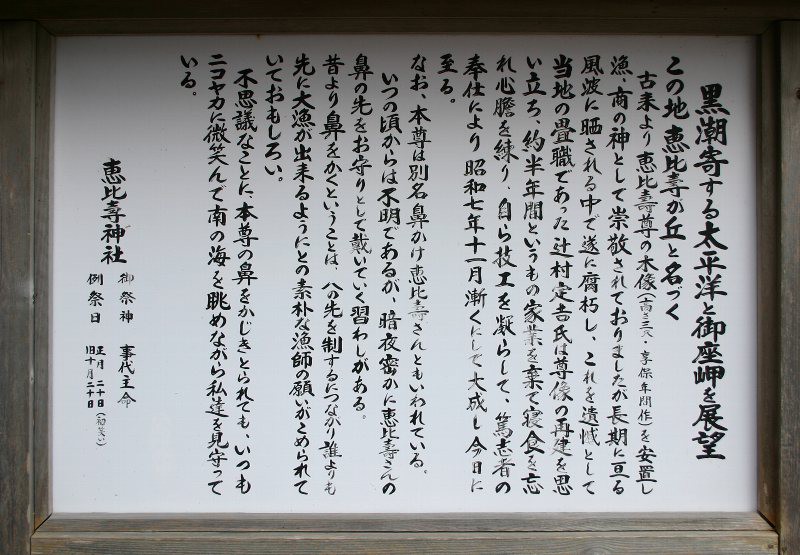 黒潮寄する太平洋と御座岬を展望
この地 恵比寿が丘と名づく
古来より恵比寿尊の木像(高さ三尺・享保年間作)を安置し
漁、商の神として崇敬されておりましたが長期に亘る
風波に晒される中で遂に腐朽し、これを遺憾として
当地の畳職であった辻村定吉氏は尊像の再建を思
い立ち、約半年間というもの家業を棄て寝食を忘
れ心膽を練り、自ら技工を凝らして、篤志者の
奉仕により昭和七年十一月漸くにして大成し今日に
至る。
なお、本尊は別名鼻かけ恵比寿さんともいわれている。
いつの頃からは不明であるが、暗夜密かに恵比寿さんの
鼻の先をお守りとして戴いていく習わしがある。
昔より鼻をかくということは、人の先を制するにつながり誰よりも
先に大漁が出来るようにとの素朴な漁師の願いがこめられて
いておもしろい。
不思議なことに本尊の鼻をかじきとられても、いつも
ニコヤカに微笑んで南の海を眺めながら私達を見守って
いる。
恵比寿神社
御祭神 事代主命
例祭日 正月二十日(初笑い)
旧十月二十日